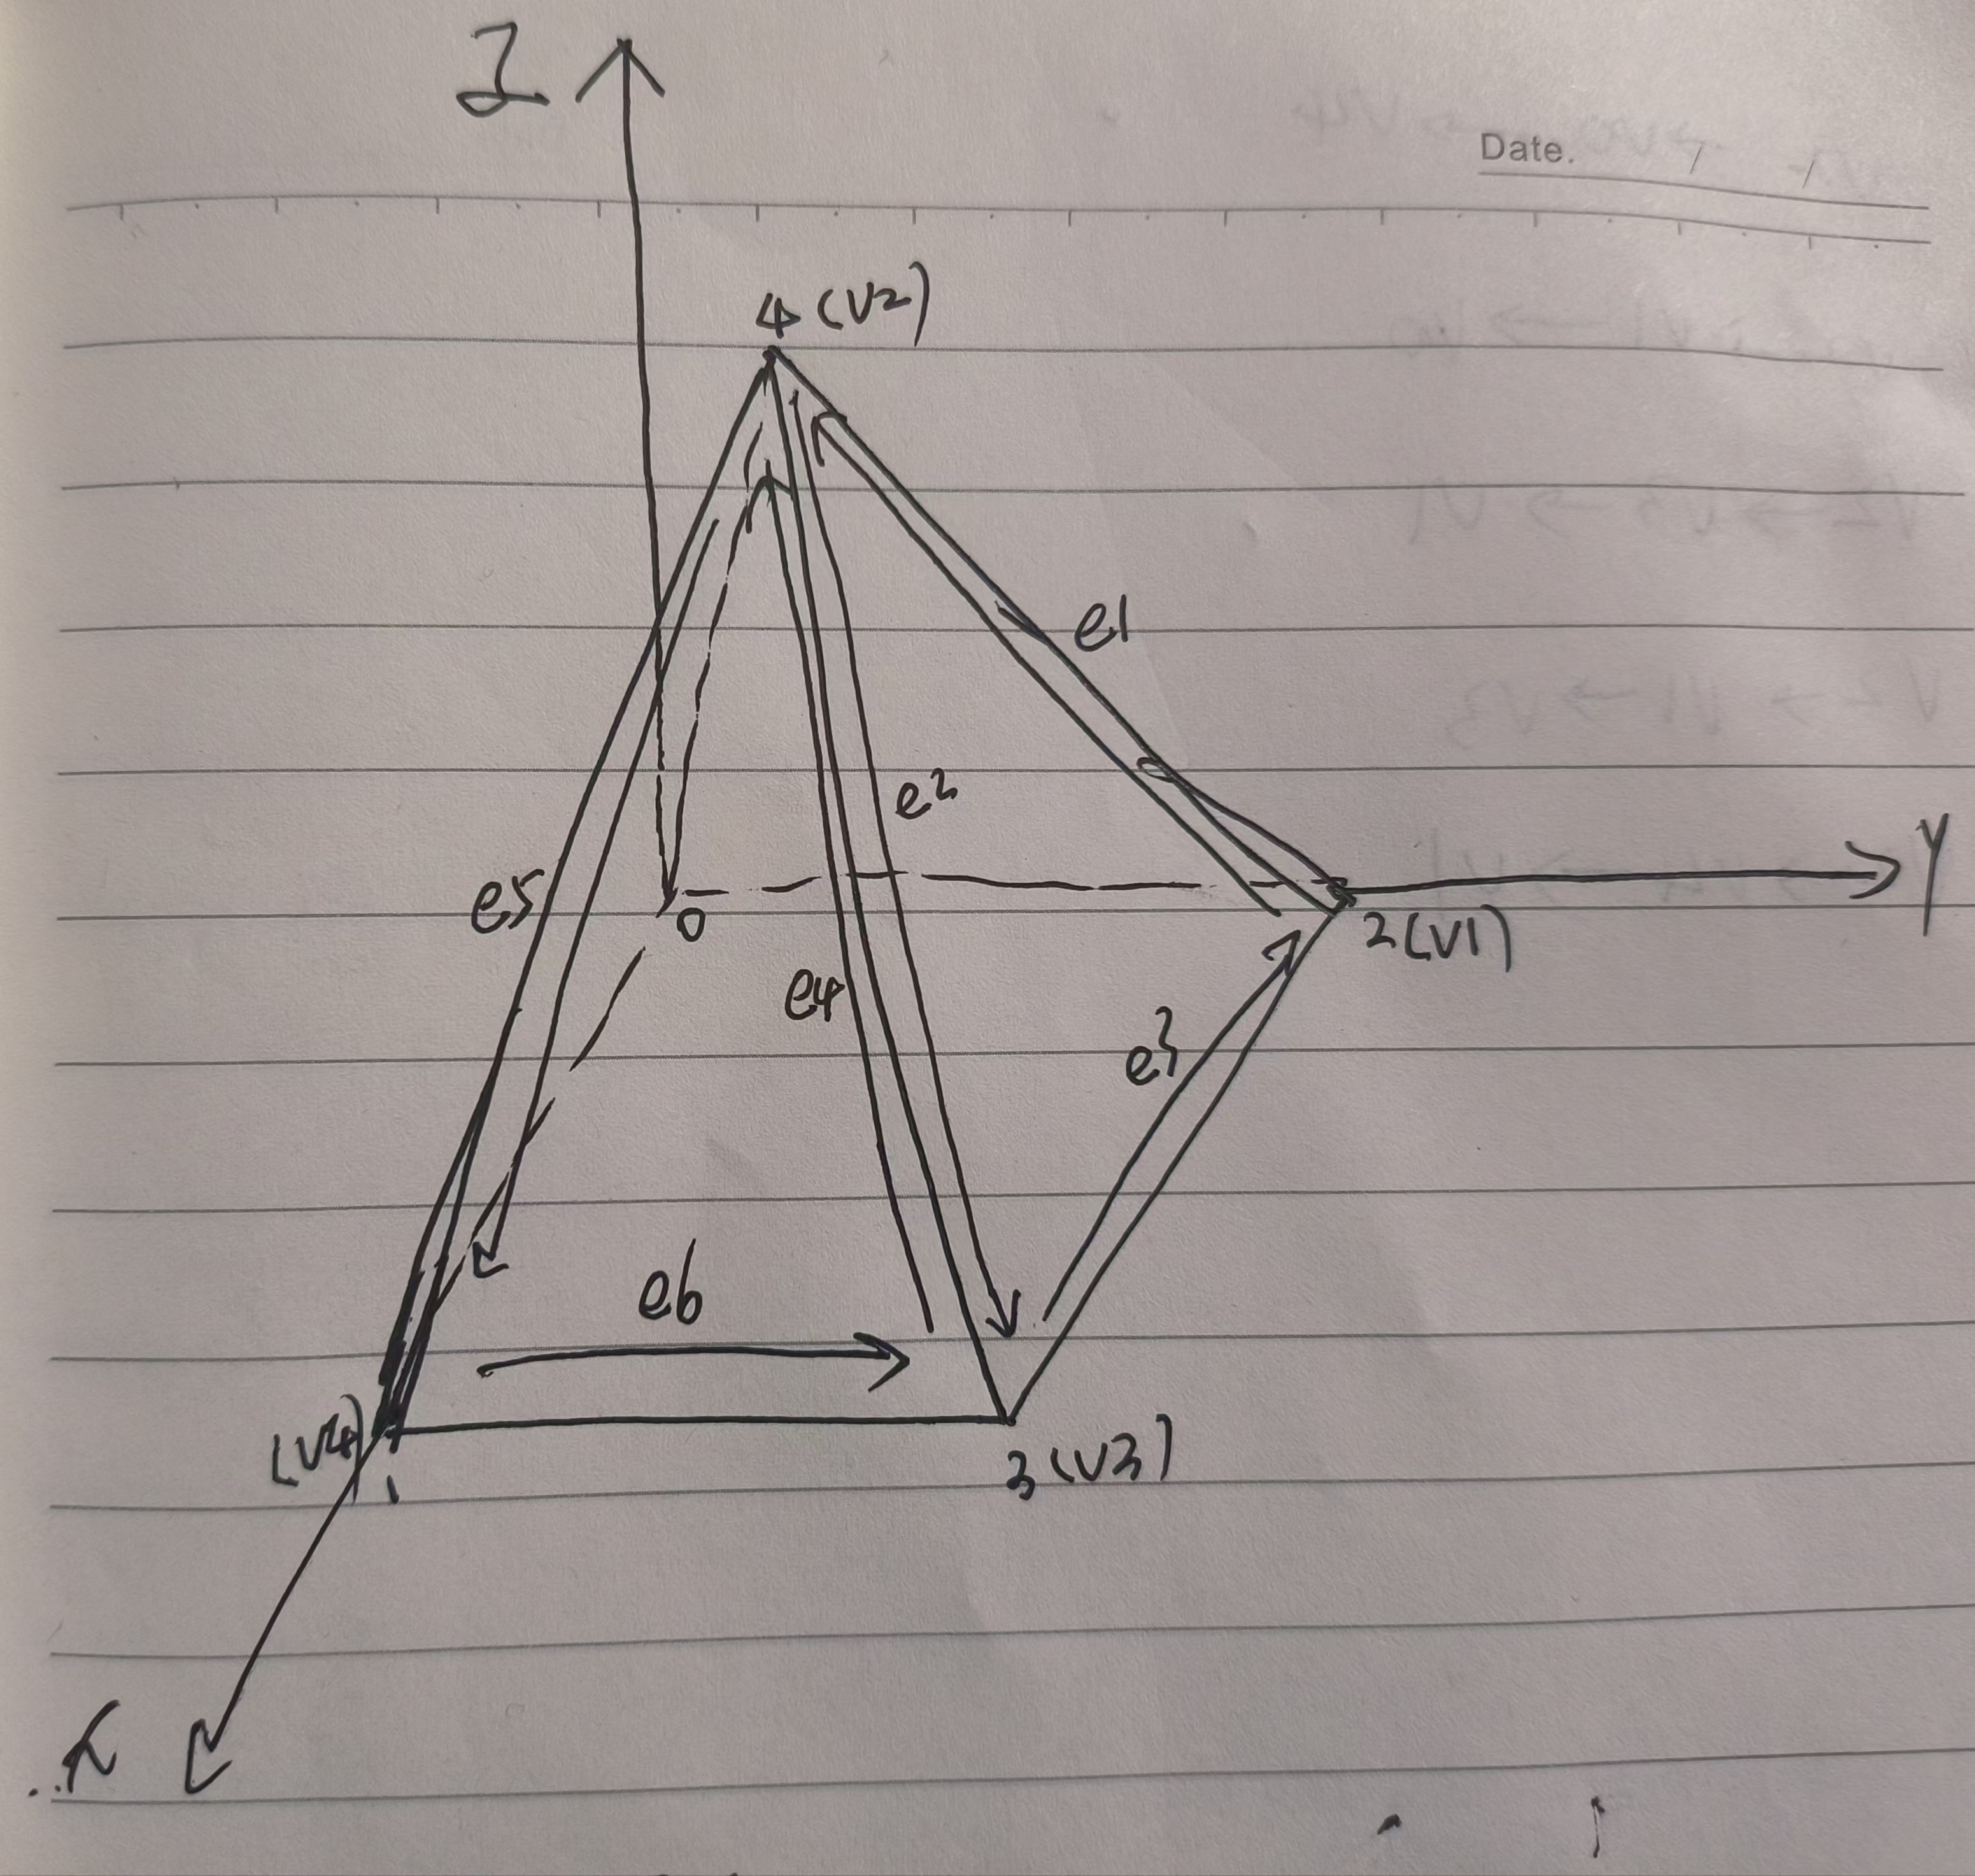 Z
Date. / /
4 (V2)
e1
e2
e5
Y
0
2 (V1)
e4
e3
e6
(V4)
1
3 (V3)
X